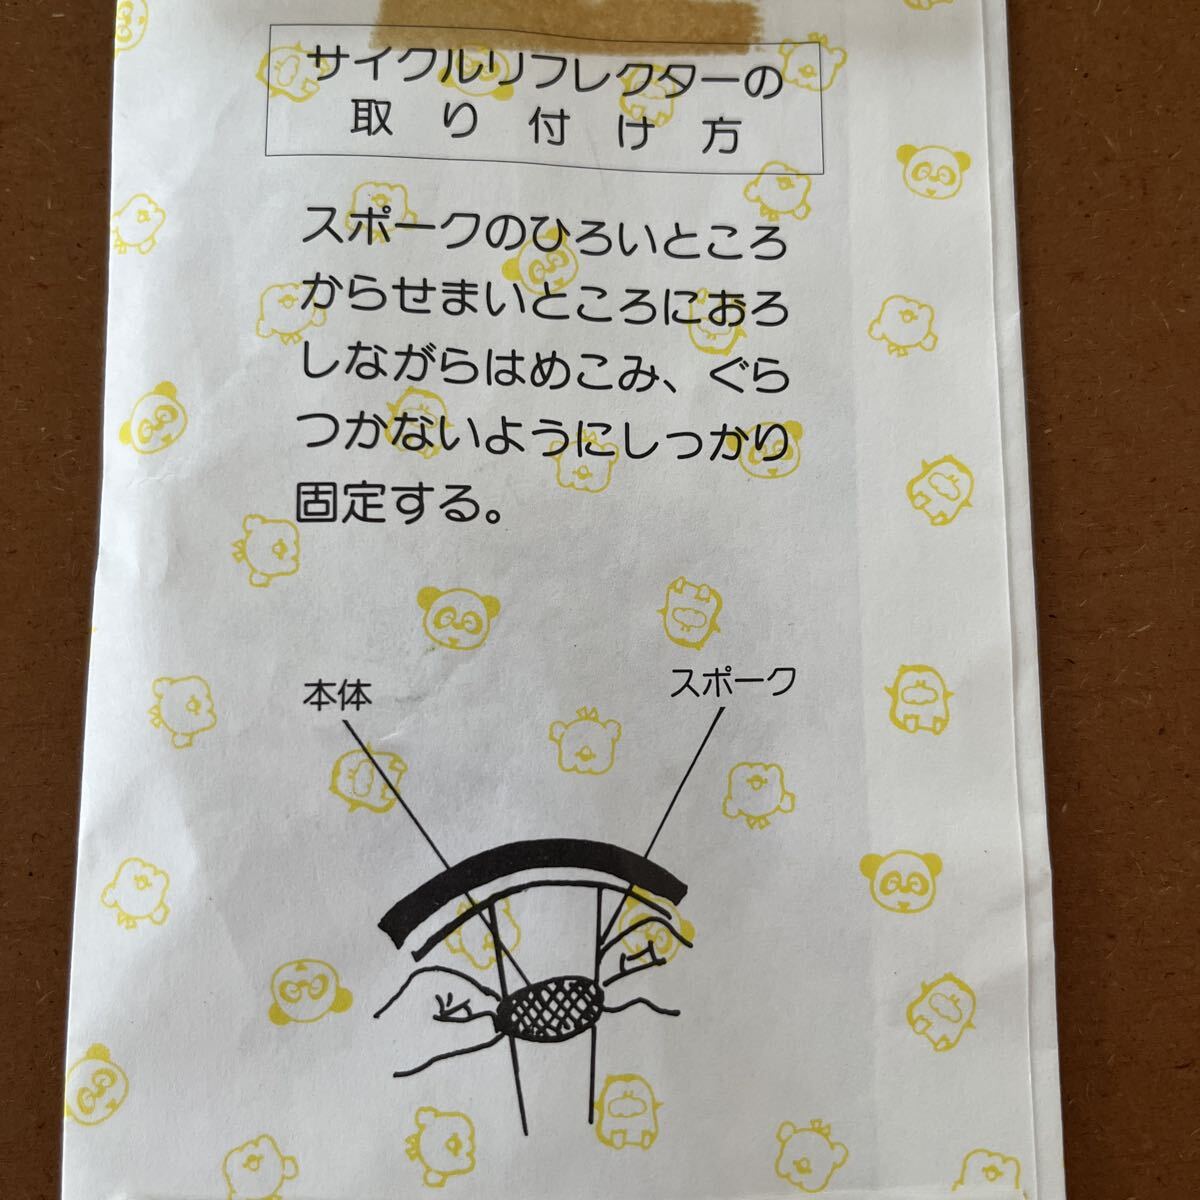 サイクルリフレクターの
取り付け方
スポークのひろいところ
からせまいところにおろ
しながらはめこみ、ぐら
つかないようにしっかり
固定する。
本体
スポーク